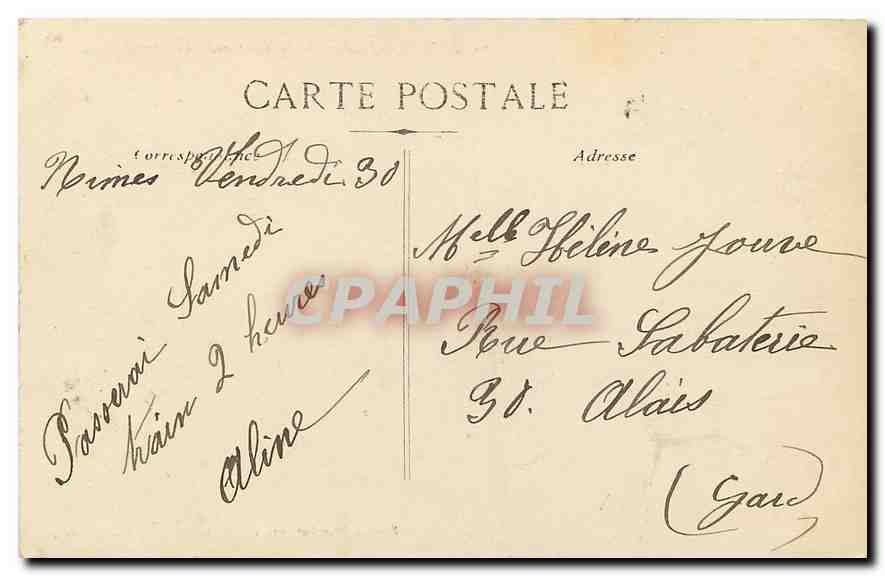 CARTE POSTALE
Correspondance
Nimes Vendredi 30
Passerai Samedi
train 2 heures
Aline
Adresse
Melle Hélène Jouve
Rue Sabaterie
30. Alais
(Gard)
CPAPHIL